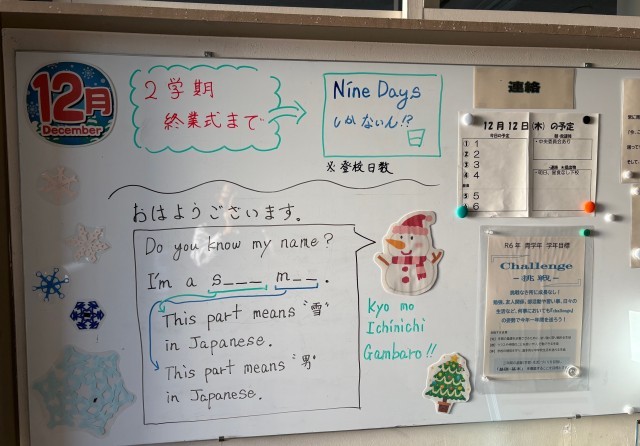 12月
December
2学期
終業式まで
Nine Days
しかないん!?
日
※登校日数
おはようございます。
Do you know my name?
I'm a s___ m__.
This part means "雪"
in Japanese.
This part means "男"
in Japanese.
Kyo no
Ichinichi
Gambaro!!
連絡
12月12日(木)の予定
1
2
3
4
5
6
・中央委員会あり
Challenge
-挑戦-